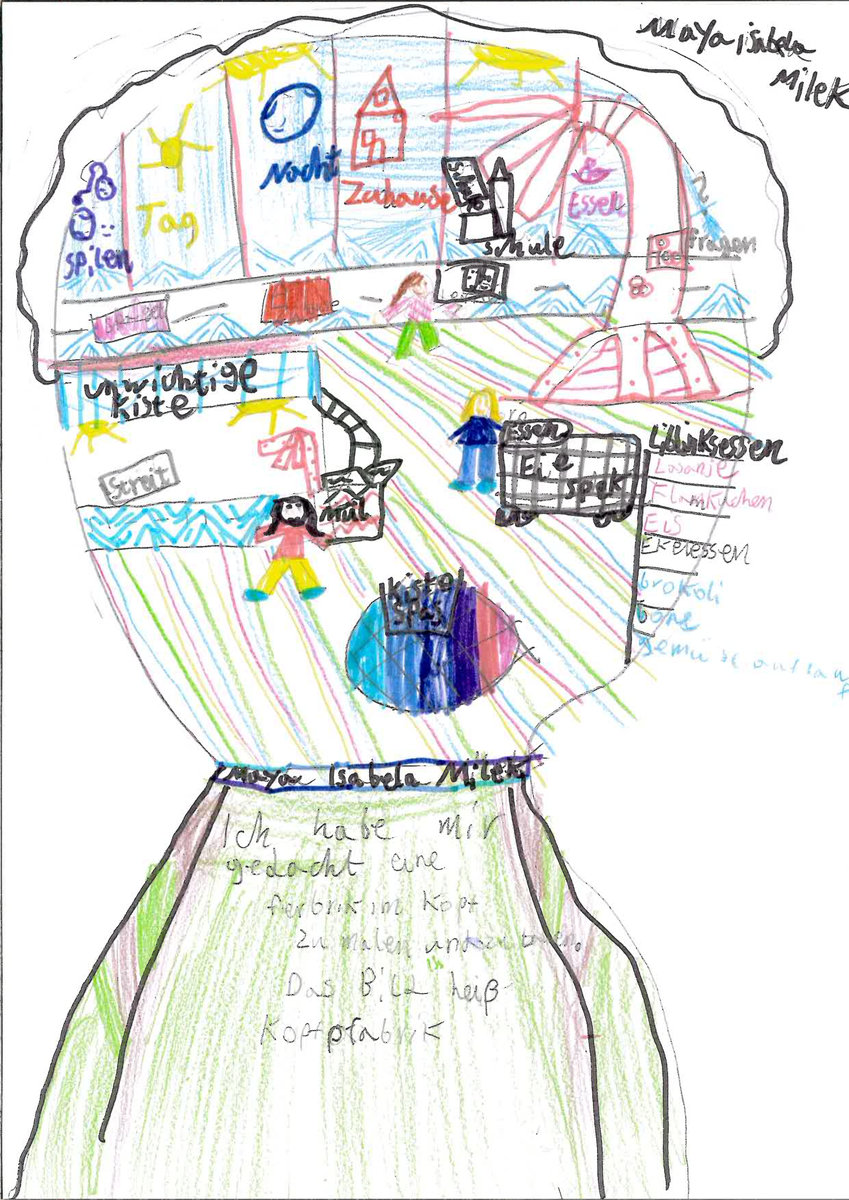 Maya isabela
Milek
spilen
Tag
Nacht
Zuhause
schule
Essen
fragen
unwichtige
kiste
Streit
Mül
Essen
Eie
spek
Liblinksessen
Lasanje
Flamkuchen
Eis
Ekelessen
brokoli
bone
gemüseauflauf
kiste
Spas
Maya Isabela Milek
Ich habe mir
gedacht eine
ferbrik im Kopf
zu malen und
Das Bild heiß
Kopfpfabrik